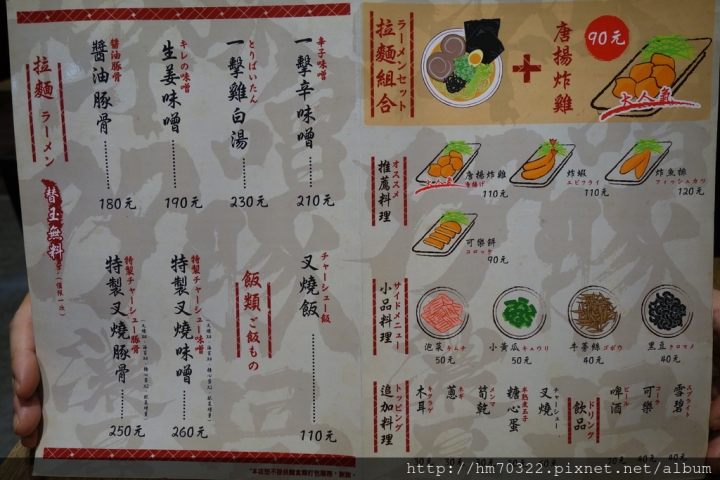 拉麵 ラーメン
醬油豚骨
醬油豚骨
180元
キレの味噌
生姜味噌
190元
とりぱいたん
一擊雞白湯
230元
辛子味噌
一擊辛味噌
210元
替玉無料
特製チャーシュー豚骨
特製叉燒豚骨
250元
特製チャーシュー味噌
特製叉燒味噌
260元
飯類 ご飯もの
チャーシュー飯
叉燒飯
110元
ラーメンセット
拉麵組合
+
唐揚炸雞
90元
大人氣
オススメ
推薦料理
大人氣
唐揚炸雞
唐揚げ
110元
炸蝦
エビフライ
110元
炸魚排
フィッシュカツ
120元
可樂餅
コロッケ
90元
サイドメニュー
小品料理
泡菜 キムチ
50元
小黃瓜 キュウリ
50元
牛蒡絲 ゴボウ
40元
黑豆 クロマメ
40元
トッピング
追加料理
キクラゲ
木耳
ネギ
蔥
メンマ
筍乾
半熟煮玉子
糖心蛋
チャーシュー
叉燒
ドリンク
飲品
ビール
啤酒
コーラ
可樂
スプライト
雪碧
http://hm70322.pixnet.net/album